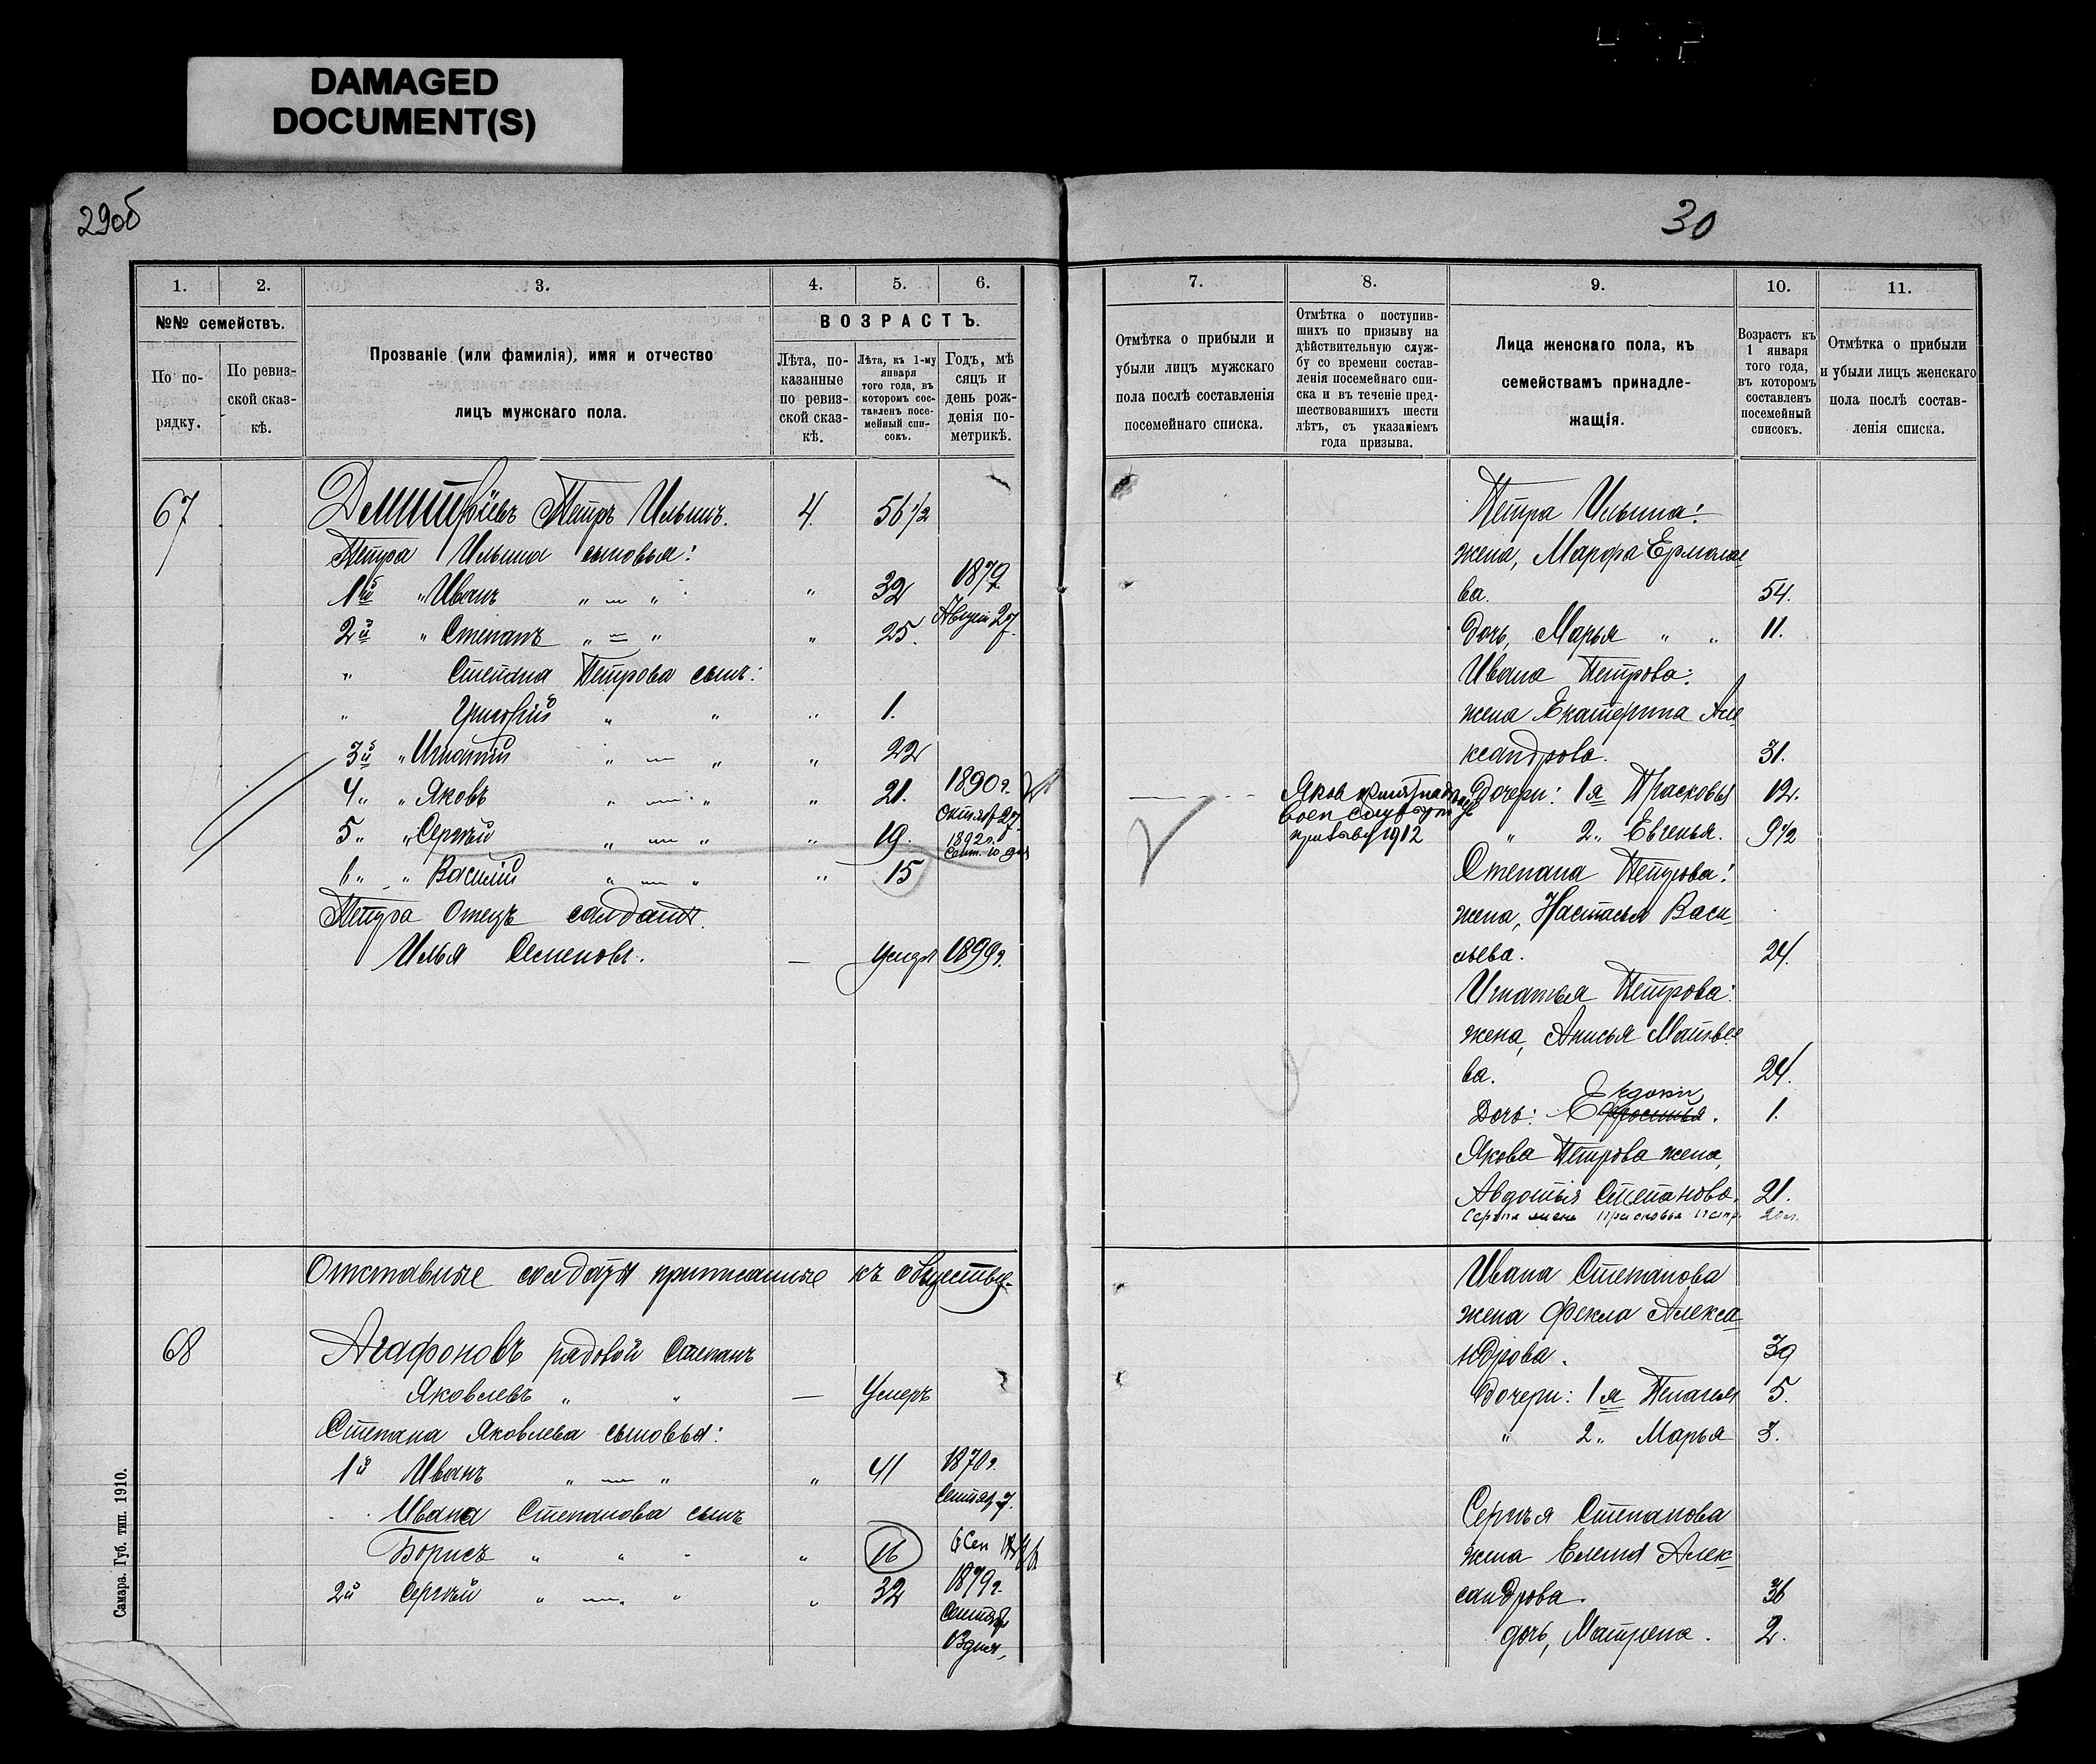 DAMAGED
DOCUMENT(S)
29об
30
1. 2. 3. 4. 5. 6.
№№ семействъ.
По порядку.
По ревизской сказкѣ.
Прозваніе (или фамилія), имя и отчество
лицъ мужскаго пола.
ВОЗРАСТЪ.
Лѣта, показанные по ревизской сказкѣ.
Лѣта, къ 1-му января того года, въ которомъ составленъ посемейный списокъ.
Годъ, мѣсяцъ и день рожденія по метрикѣ.
67 Дмитріевъ Петръ Ильинъ. 4. 56 1/2
Петра Ильина сыновья:
1й " Иванъ " — " " 32 1879
Август 27.
2й " Степанъ " — " " 25.
" Степана Петрова сынъ:
" Григорій " " " 1.
3й " Игнатій " — " " 22
4 " " Яковъ " — " " 21. 1890 г.
Октяб 27.
5 " " Сергѣй " — " " 19. 1892 г.
Сент. 10 дня
6 " " Василій " — " " 15
Петра отецъ солдатъ.
Илья Семеновъ. — умеръ 1899 г.
Отставные солдаты приписанные къ обществу.
68 Агафоновъ рядовой Степанъ
Яковлевъ " " — Умеръ
Степана Яковлева сыновья:
1й Иванъ " — " " 41 1870 г.
Сентяб 7.
Ивана Степанова сынъ
Борисъ " " " " 16 6 Сен
2й Сергѣй " — " " 32 1879 г.
Сентяб
Самара. Губ. тип. 1910.
7. 8. 9. 10. 11.
Отмѣтка о прибыли и
убыли лицъ мужскаго
пола послѣ составленія
посемейнаго списка.
Отмѣтка о поступив-
шихъ по призыву на
дѣйствительную служ-
бу со времени состав-
ленія посемейнаго спи-
ска и въ теченіе пред-
шествовавшихъ шести
лѣтъ, съ указаніемъ
года призыва.
Лица женскаго пола, къ
семействамъ принадле-
жащія.
Возрастъ къ
1 января
того года,
въ которомъ
составленъ
посемейный
списокъ.
Отмѣтка о прибыли
и убыли лицъ женскаго
пола послѣ состав-
ленія списка.
Яков принят на
воен службу
призыву 1912
Петра Ильина:
жена, Марфа Ермолае
ва. 54.
дочь, Марья " " 11.
Ивана Петрова:
жена Екатерина Але
ксандрова. 31.
Дочери: 1я Прасковья 12.
" 2 " Евгенья. 9 1/2
Степана Петрова:
жена, Настасья Васи-
льева. 24.
Игнатья Петрова:
жена, Анисья Матвѣе
ва. 24.
Дочь: Евдоки 1.
Якова Петрова жена,
Авдотья Степанова. 21.
Сергея жена Прасковья Петр. 20 л.
Ивана Степанова
жена Фекла Алекса-
ндрова. 39
Дочери: 1я Пелагея 5.
" 2 " Марья 3.
Сергѣя Степанова
жена Елена Алек-
сандрова. 36
дочь, Матрена. 2.